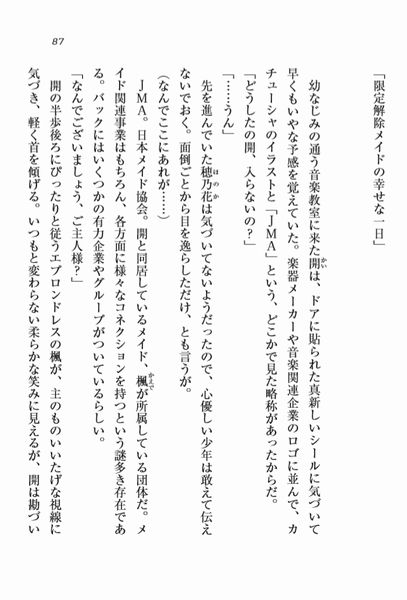 87
「限定解除メイドの幸せな一日」
幼なじみの通う音楽教室に来た開かいは、ドアに貼られた真新しいシールに気づいて
早くもいやな予感を覚えていた。楽器メーカーや音楽関連企業のロゴに並んで、カ
チューシャのイラストと「JMA」という、どこかで見た略称があったからだ。
「どうしたの開、入らないの?」
「……うん」
先を進んでいた穂乃花ほのかは気づいてないようだったので、心優しい少年は敢えて伝え
ないでおく。面倒ごとから目を逸らしただけ、とも言うが。
(なんでここにあれが……)
JMA。日本メイド協会。開と同居しているメイド、楓かえでが所属している団体だ。メ
イド関連事業はもちろん、各方面に様々なコネクションを持つという謎多き存在であ
る。バックにはいくつかの有力企業やグループがついているらしい。
「なんでございましょう、ご主人様?」
開の半歩後ろにぴったりと従うエプロンドレスの楓が、主のものいいたげな視線に
気づき、軽く首を傾げる。いつもと変わらない柔らかな笑みに見えるが、開は勘づい